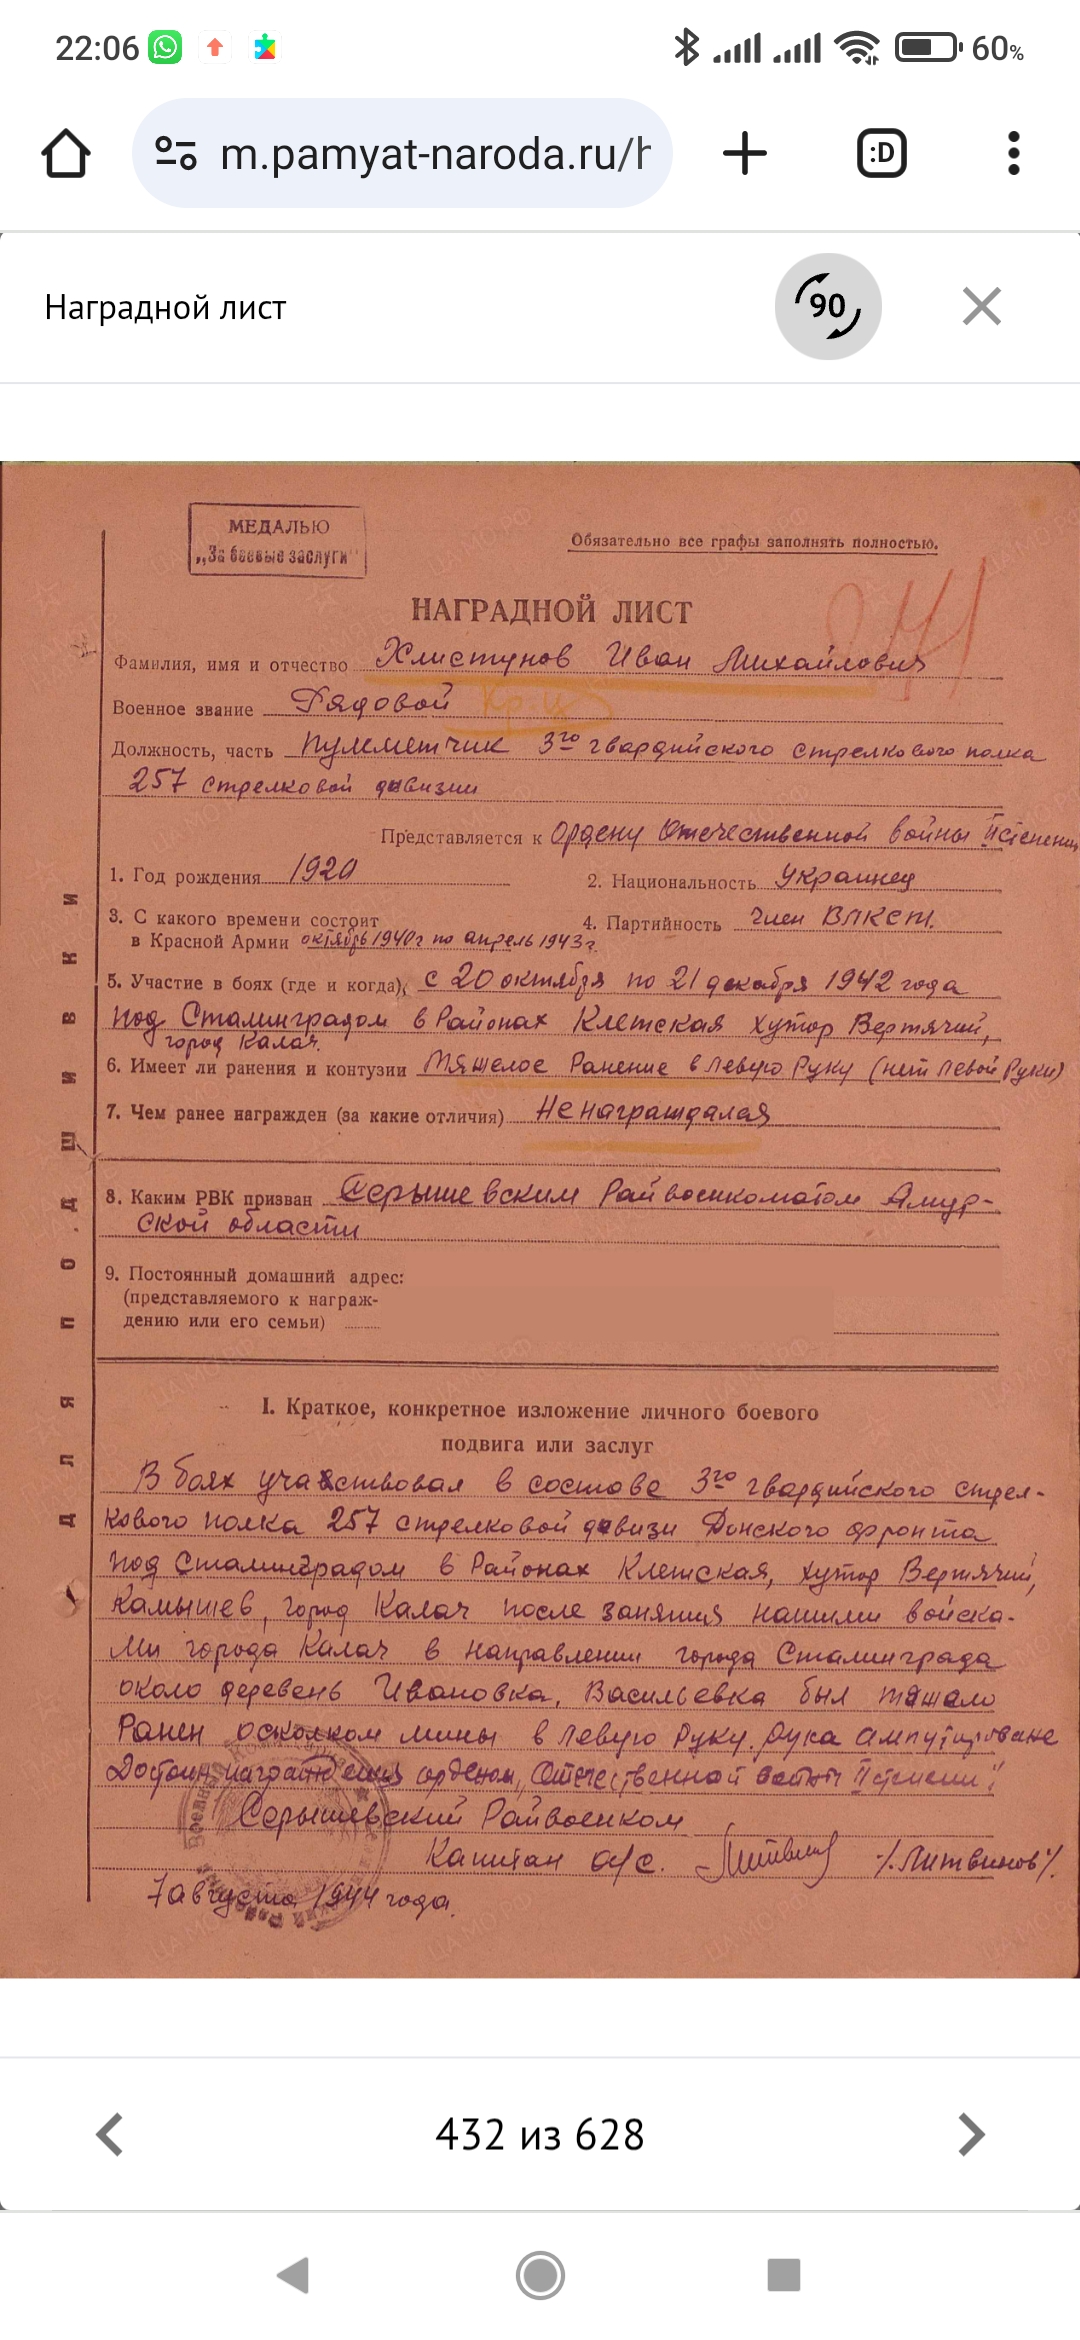 22:06
60%
m.pamyat-naroda.ru/h
:D
Наградной лист
90
МЕДАЛЬЮ
„За боевые заслуги"
Обязательно все графы заполнять полностью.
НАГРАДНОЙ ЛИСТ
Фамилия, имя и отчество Хлистунов Иван Михайлович
Военное звание Рядовой Кр-ц
Должность, часть Пулеметчик 3го гвардийского стрелкового полка
257 стрелковой дивизии
Представляется к Ордену Отечественной войны II степени
1. Год рождения 1920
2. Национальность Украинец
3. С какого времени состоит
в Красной Армии октябрь 1940г по апрель 1943г.
4. Партийность Член ВЛКСМ.
5. Участие в боях (где и когда) с 20 октября по 21 декабря 1942 года
под Сталинградом в Районах Клетская хутор Вертячий,
город Калач.
6. Имеет ли ранения и контузии Тяжелое Ранение в левую Руку (нет левой Руки)
7. Чем ранее награжден (за какие отличия) Не награждался
8. Каким РВК призван Серышевским Райвоенкоматом Амур-
ской области
9. Постоянный домашний адрес:
(представляемого к награж-
дению или его семьи)
ДЛЯ ПОДШИВКИ
I. Краткое, конкретное изложение личного боевого
подвига или заслуг
В боях участвовал в составе 3го гвардийского стрел-
кового полка 257 стрелковой дивизи Донского фронта
под Сталинградом в Районах Клетская, хутор Вертячий,
Камышев, город Калач после занятия нашими войска-
ми города Калач в направлении города Сталинграда
около деревень Ивановка, Васильевка был тяжело
Ранен осколком мины в левую Руку. Рука ампутирована
Достоин награждения орденом, Отечественной войны II степени"
Серышевский Райвоенком
Капитан а/с. /Литвинов/.
7 августа 1944 года.
432 из 628